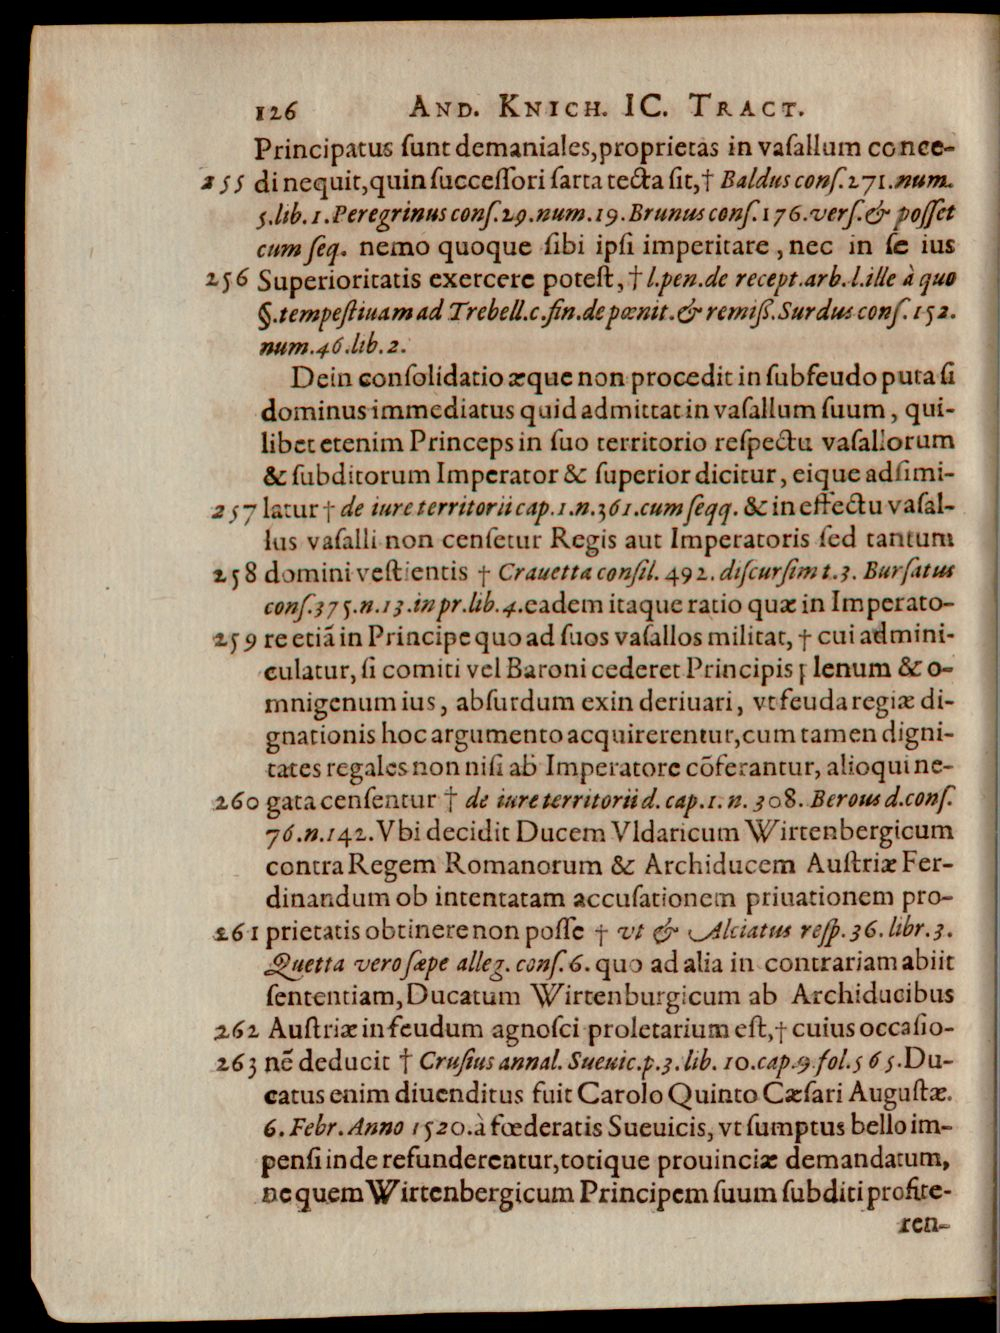 126 AND. KNICH. IC. TRACT.
Principatus ſunt demaniales, proprietas in vaſallum conce-
255 di nequit, quin ſucceſſori ſarta tecta ſit, † Baldus conſ. 271. num.
5. lib. 1. Peregrinus conſ. 29. num. 19. Brunus conſ. 176. verſ. & poſſet
cum ſeq. nemo quoque ſibi ipſi imperitare, nec in ſe ius
256 Superioritatis exercere poteſt, † l. pen. de recept. arb. l. ille à quo
§. tempeſtiuam ad Trebell. c. fin. de pœnit. & remiſſ. Surdus conſ. 152.
num. 46. lib. 2.
Dein conſolidatio æque non procedit in ſubfeudo puta ſi
dominus immediatus quid admittat in vaſallum ſuum, qui-
libet etenim Princeps in ſuo territorio reſpectu vaſallorum
& ſubditorum Imperator & ſuperior dicitur, eique adſimi-
257 latur † de iure territorii cap. 1. n. 361. cum ſeqq. & in effectu vaſal-
lus vaſalli non cenſetur Regis aut Imperatoris ſed tantum
258 domini veſtientis † Crauetta conſil. 492. diſcurſim t. 3. Burſatus
conſ. 375. n. 13. in pr. lib. 4. eadem itaque ratio quæ in Imperato-
259 re etiã in Principe quo ad ſuos vaſallos militat, † cui admini-
culatur, ſi comiti vel Baroni cederet Principis plenum & o-
mnigenum ius, abſurdum exin deriuari, vt feuda regiæ di-
gnationis hoc argumento acquirerentur, cum tamen digni-
tates regales non niſi ab Imperatore cõferantur, alioqui ne-
260 gata cenſentur † de iure territorii d. cap. 1. n. 308. Berous d. conſ.
76. n. 142. Vbi decidit Ducem Vldaricum Wirtenbergicum
contra Regem Romanorum & Archiducem Auſtriæ Fer-
dinandum ob intentatam accuſationem priuationem pro-
261 prietatis obtinere non poſſe † vt & Alciatus reſp. 36. libr. 3.
Quetta vero ſæpe alleg. conſ. 6. quo ad alia in contrariam abiit
ſententiam, Ducatum Wirtenburgicum ab Archiducibus
262 Auſtriæ in feudum agnoſci proletarium eſt, † cuius occaſio-
263 nẽ deducit † Cruſius annal. Sueuic. p. 3. lib. 10. cap. 9. fol. 565. Du-
catus enim diuenditus fuit Carolo Quinto Cæſari Auguſtæ.
6. Febr. Anno 1520. à fœderatis Sueuicis, vt ſumptus bello im-
penſi inde refunderentur, totique prouinciæ demandatum,
ne quem Wirtenbergicum Principem ſuum ſubditi profite-
ren-